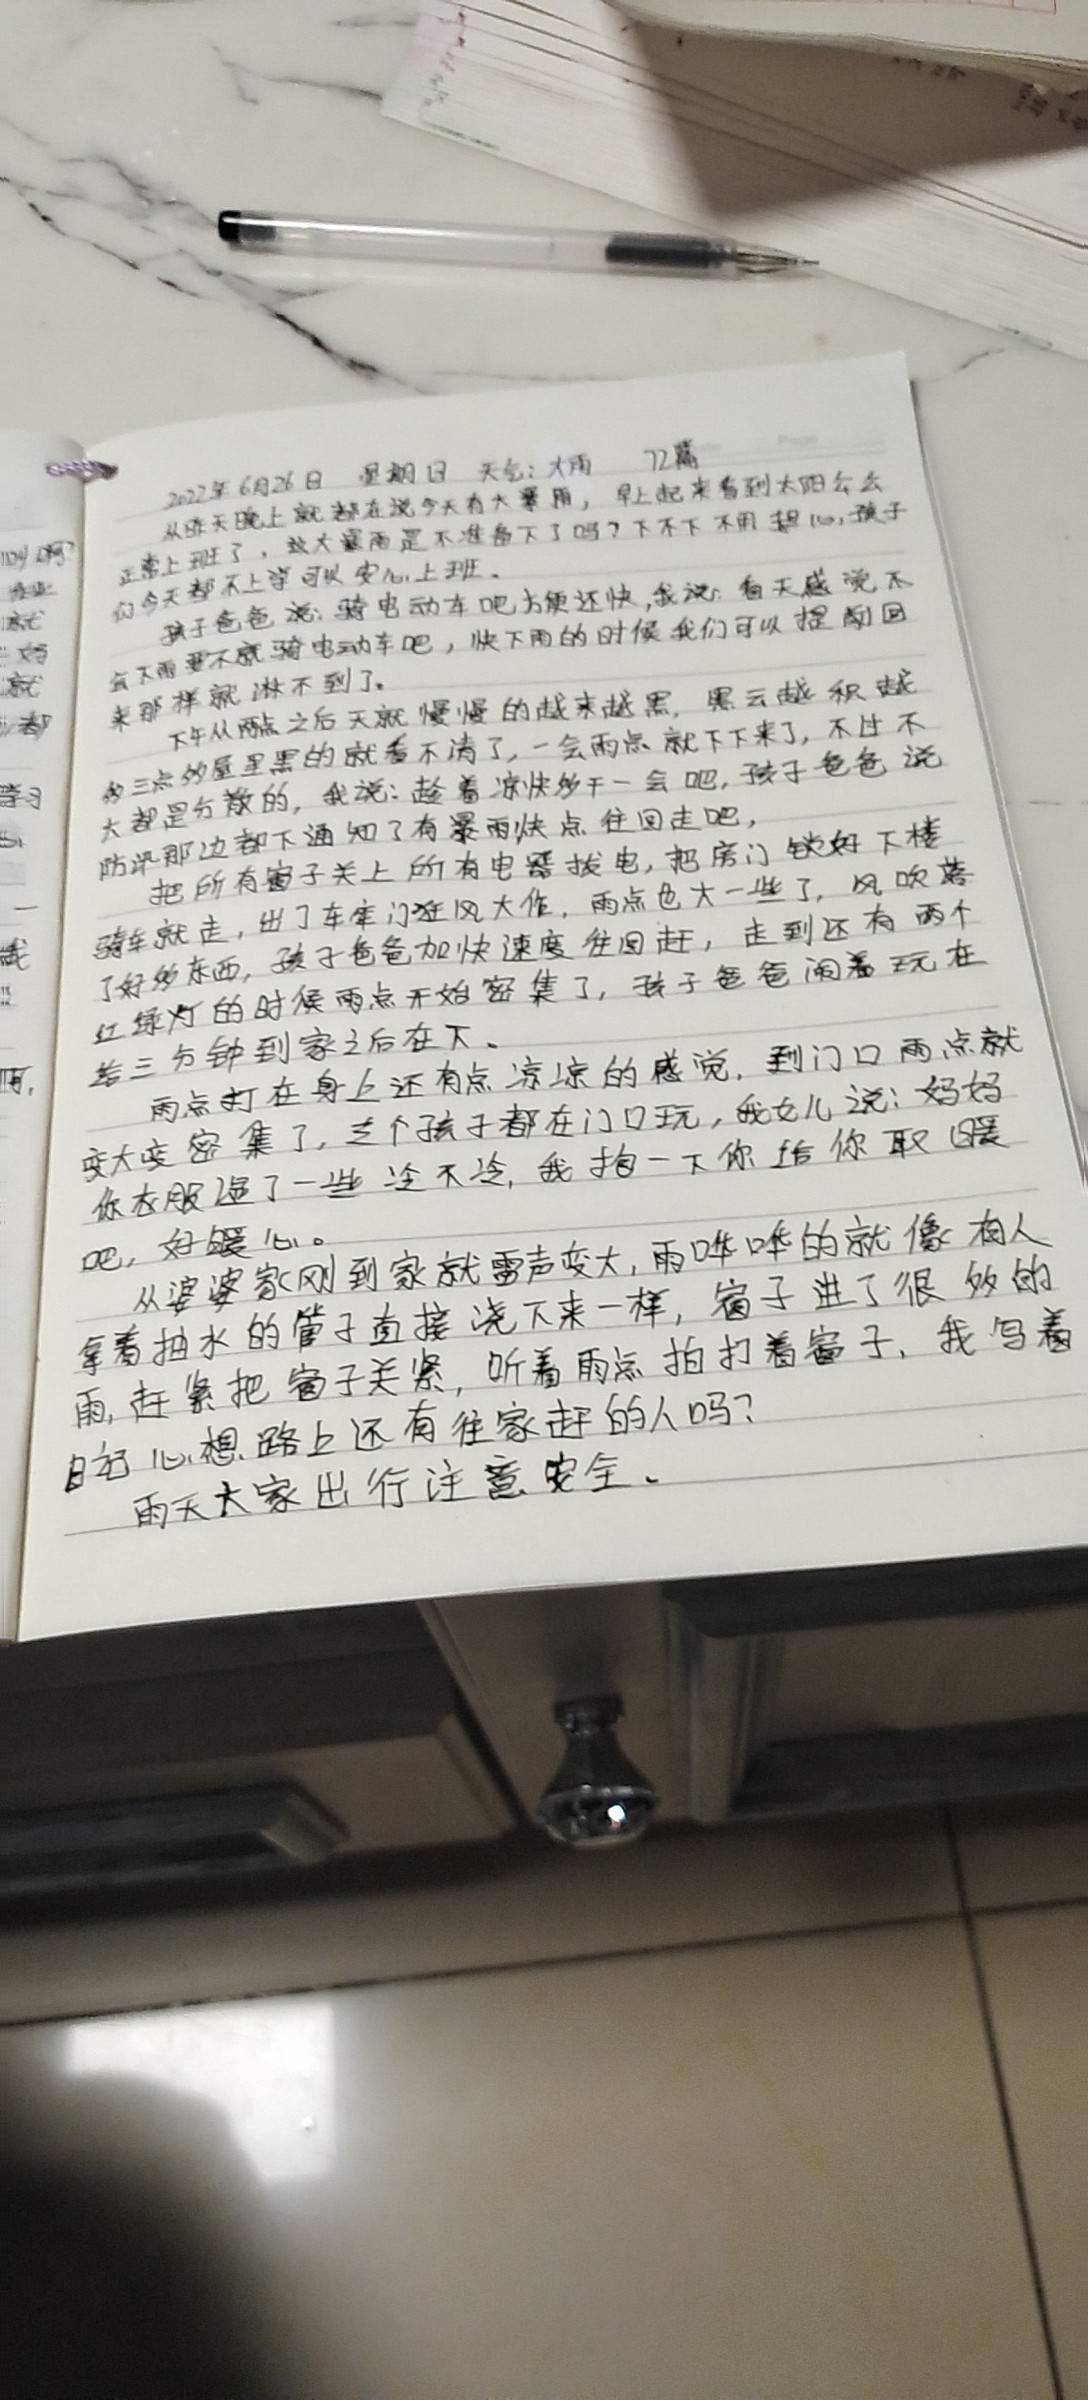 2022年6月26日 星期日 天气:大雨 72篇
从昨天晚上就都在说今天有大暴雨，早上起来看到太阳公公
正常上班了，这大暴雨是不准备下了吗？下不下不用担心，孩子
们今天都不上学可以安心上班。
孩子爸爸说：骑电动车吧方便还快，我说：看天感觉不
会下雨要不就骑电动车吧，快下雨的时候我们可以提前回
来那样就淋不到了。
下午从两点之后天就慢慢的越来越黑，黑云越积越
多三点多屋里黑的就看不清了，一会雨点就下下来了，不过不
大都是分散的，我说：趁着凉快多干一会吧，孩子爸爸说
防汛那边都下通知了有暴雨快点往回走吧，
把所有窗子关上所有电器拔电，把房门锁好下楼
骑车就走，出了车库门狂风大作，雨点也大一些了，风吹落
了好多东西，孩子爸爸加快速度往回赶，走到还有两个
红绿灯的时候雨点开始密集了，孩子爸爸闹着玩在
给三分钟到家之后在下。
雨点打在身上还有点凉凉的感觉，到门口雨点就
变大变密集了，三个孩子都在门口玩，我女儿说：妈妈
你衣服湿了一些冷不冷，我抱一下你给你取暖
吧，好暖心。
从婆婆家刚到家就雷声变大，雨哗哗的就像有人
拿着抽水的管子直接浇下来一样，窗子进了很多的
雨，赶紧把窗子关紧，听着雨点拍打着窗子，我写着
日记心想路上还有往家赶的人吗？
雨天大家出行注意安全。